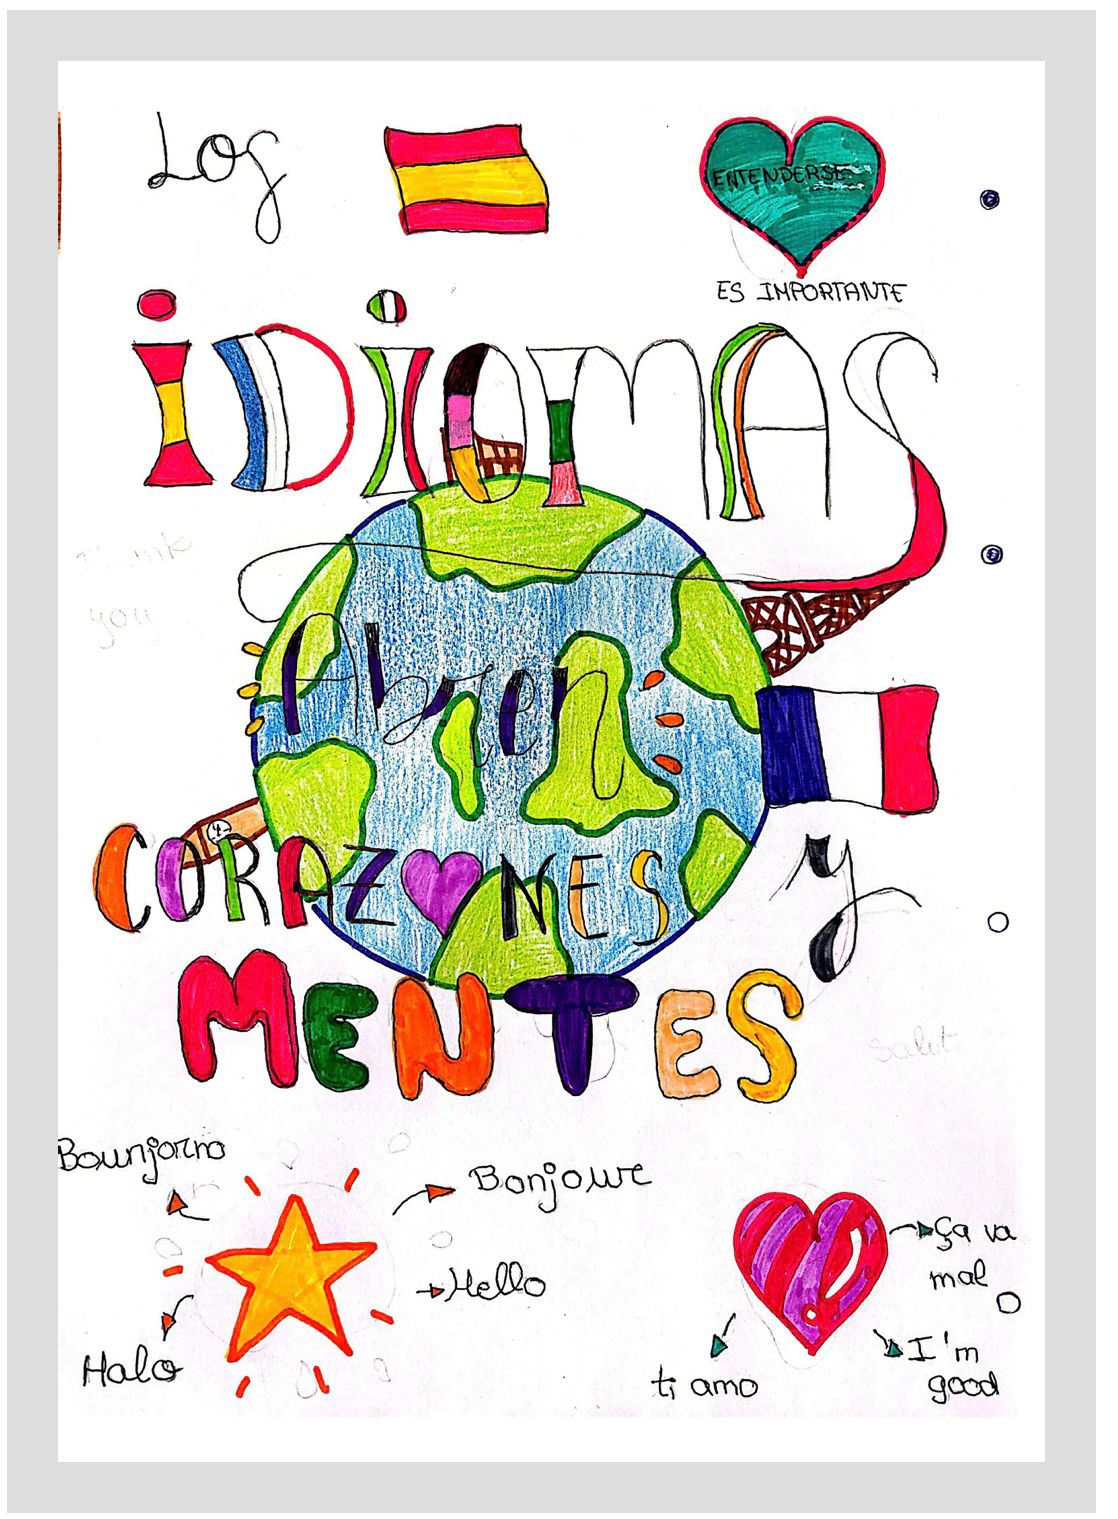 Los
ENTENDERSE
ES IMPORTANTE
iDiOMAS
Thank
you
Abren
CORAZONES
y
MENTES
Salut
Bounjorno
Bonjoure
Hello
Halo
Ça va
mal
I'm
good
ti amo